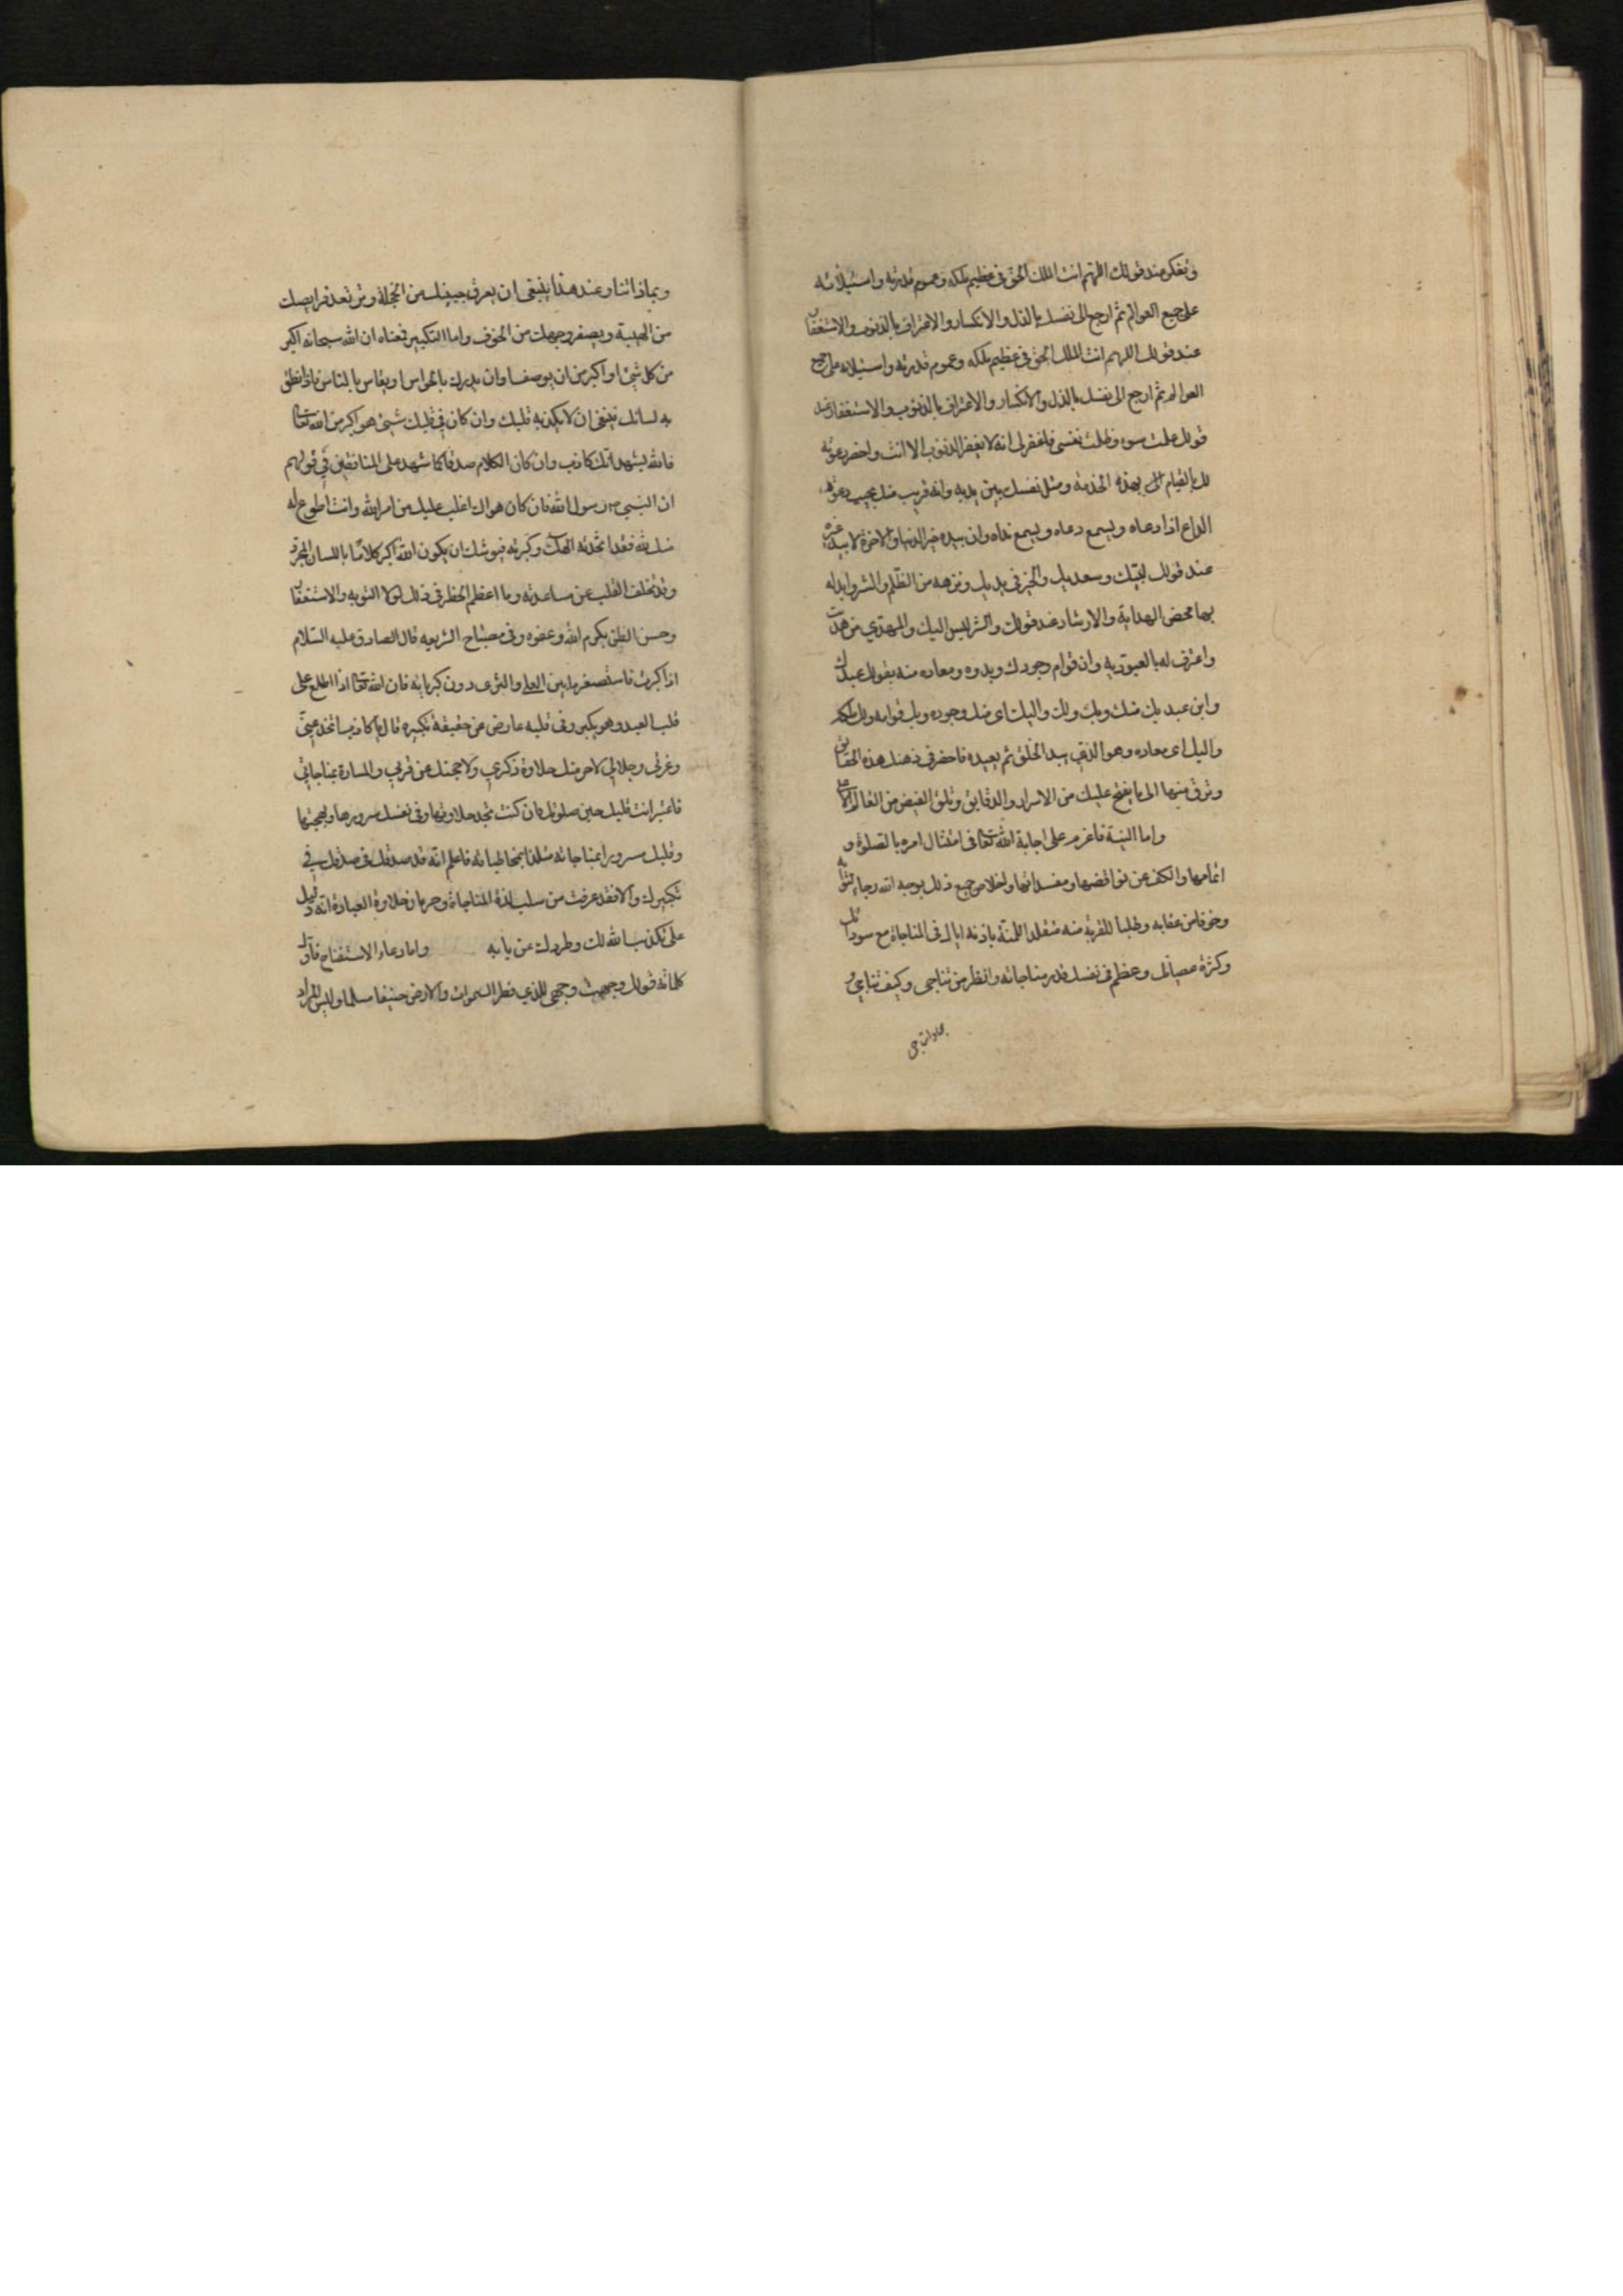 وتفكر عند قولك اللهم انت الملك الحق في عظيم ملكه وعموم قدرته واستيلائه
على جميع العوالم ثم ارجع الى نفسك بالذل والانكسار والاعتراف بالذنوب والاستغفار
عند قولك اللهم انت الملك الحق في عظيم ملكه وعموم قدرته واستيلائه على جميع
العوالم ثم ارجع الى نفسك بالذل والانكسار والاعتراف بالذنوب والاستغفار عند
قولك عملت سوء وظلمت نفسي فاغفر لي انه لا يغفر الذنوب الا انت واحضر دعوته
لك بالقيام بهذه الخدمة ومثل نفسك بين يديه وانه قريب منك يجيب دعوة
الداع اذا دعاه ويسمع نداه وان بيده خير الدنيا والاخرة لا بيد غيره
عند قولك لبيك وسعديك والخير في يديك ونزهه من الظلم والشر وابدله
بها محض الهداية والارشاد عند قولك والشر ليس اليك والمهدي من هديت
واعترف له بالعبودية وان قوام وجودك وبدوه ومعاده منه بقولك عبدك
وابن عبديك منك وبك ولك واليك اى منك وجوده وبك قوامه ولك ملكه
واليك اى معاده وهو الذي يبدا الخلق ثم يعيده فاحضر في ذهنك هذه الحقايق
وترق منها الى ما يفتح عليك من الاسرار والدقايق وتلق الفيض من العالم الاعلى
واما النية فاعزم على اجابة الله تعالى في امتثال امره بالصلوة و
اتمامها والكف عن نواقضها ومفسداتها واخلاص جميع ذلك لوجه الله رجاء لثوابه
وخوفا من عقابه وطلبا للقربة منه متقلدا للمنة باذنه اياك في المناجاة مع سوء ادبك
وكثرة عصيانك وعظم في نفسك قدر مناجاته وانظر من تناجى وكيف تناجي و
بماذا تناجي
وبماذا تناجي وعند هذا ينبغي ان يعرق جبينك من الخجلة وترتعد فرايصك
من الهيبة ويصفر وجهك من الخوف واما التكبير فمعناه ان الله سبحانه اكبر
من كل شيئ او اكبر من ان يوصف او ان يدرك بالحواس او يقاس بالناس فاذا نطق
به لسانك ينبغي ان لا يكذبه قلبك وان كان في قلبك شيئ هو اكبر من الله تعالى
فالله يشهد انك كاذب وان كان الكلام صدقا كما شهد على المنافقين في قولهم
ان النبي ص رسول الله فان كان هواك اغلب عليك من امر الله وانت اطوع له
منك لله فقد اتخذته الهك وكبرته فيوشك ان يكون الله اكبر كلاما باللسان المجرد
وقد تخلف القلب عن مساعدته وما اعظم الخطر في ذلك لولا التوبه والاستغفار
وحسن الظن بكرم الله وعفوه وفى مصباح الشريعه قال الصادق عليه السلام
اذا كبرت فاستصغر ما بين العلى والثرى دون كبريائه فان الله تعالى اذا اطلع على
قلب العبد وهو يكبر وفى قلبه عارض عن حقيقة تكبيره قال يا كاذب اتخدعني
وعزتي وجلالي لاحرمنك حلاوة ذكري ولاحجبنك عن قربي والمسارة بمناجاتي
فاعتبر انت قلبك حين صلوتك فان كنت تجد حلاوتها وفى نفسك سرورها وبهجتها
وقلبك مسرورا بمناجاته ملتذا بمخاطباته فاعلم انه قد صدقك في
تكبيرك والا فقد عرفت من سلب لذة المناجاة وحرمان حلاوة العبادة انه دليل
على تكذيب الله لك وطردك عن بابه واما دعاء الاستفتاح فاول
كلماته قولك وجهت وجهي للذي فطر السموات والارض حنيفا مسلما وليس المراد